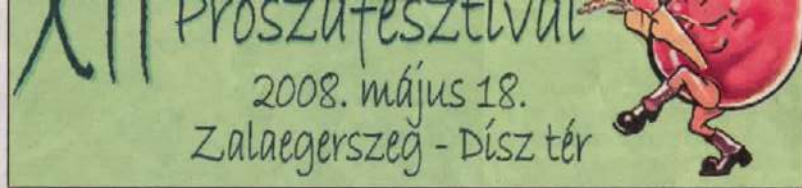 XII Prószafesztivál
2008. május 18.
Zalaegerszeg - Dísz tér